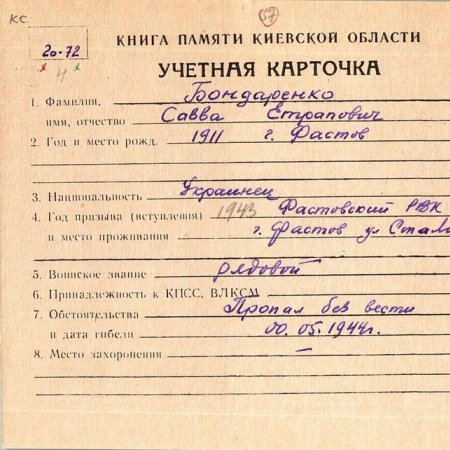 КС.
57
20-72
4
КНИГА ПАМЯТИ КИЕВСКОЙ ОБЛАСТИ
УЧЕТНАЯ КАРТОЧКА
1. Фамилия, Бондаренко
имя, отчество Савва Етрапович
2. Год и место рожд. 1911 г. Фастов
3. Национальность Украинец
4. Год призыва (вступления) 1943 Фастовский РВК
и место проживания г. Фастов ул Стали
5. Воинское звание рядовой
6. Принадлежность к КПСС, ВЛКСМ
7. Обстоятельства Пропал без вести
и дата гибели 00.05.1944г.
8. Место захоронения —